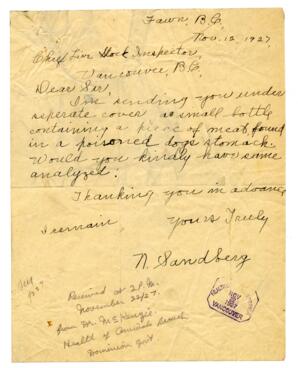 Fawn, B.C.
Nov. 12, 1927
Chief Live Stock Inspector,
Vancouver, B.C.
Dear Sir,
I'm sending you under
seperate cover, a small bottle
containing a piece of meat, found
in a poisoned dogs stomack.
Would you kindly have same
analyzed.
Thanking you in advance
I remain Yours Truly
N. Sandberg
Received at 2 P.M.
November 22/27.
from Dr. McKenzie,
Health of Animals Branch
Dominion Govt
NOV
1927
VANCOUVER